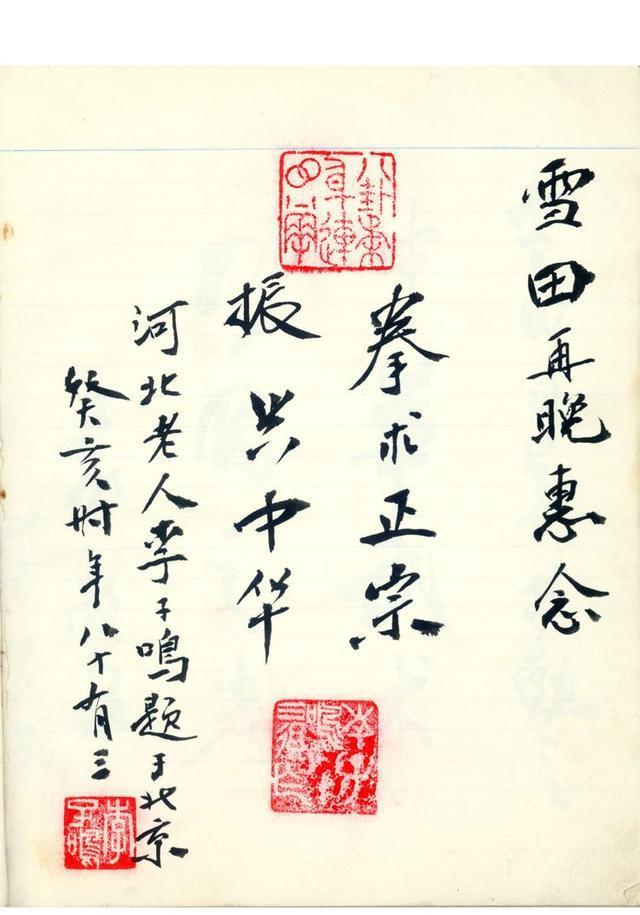 雪田再晚惠念
拳求正宗
振兴中华
河北老人李子鸣题于北京
癸亥时年八十有三
李子鳴